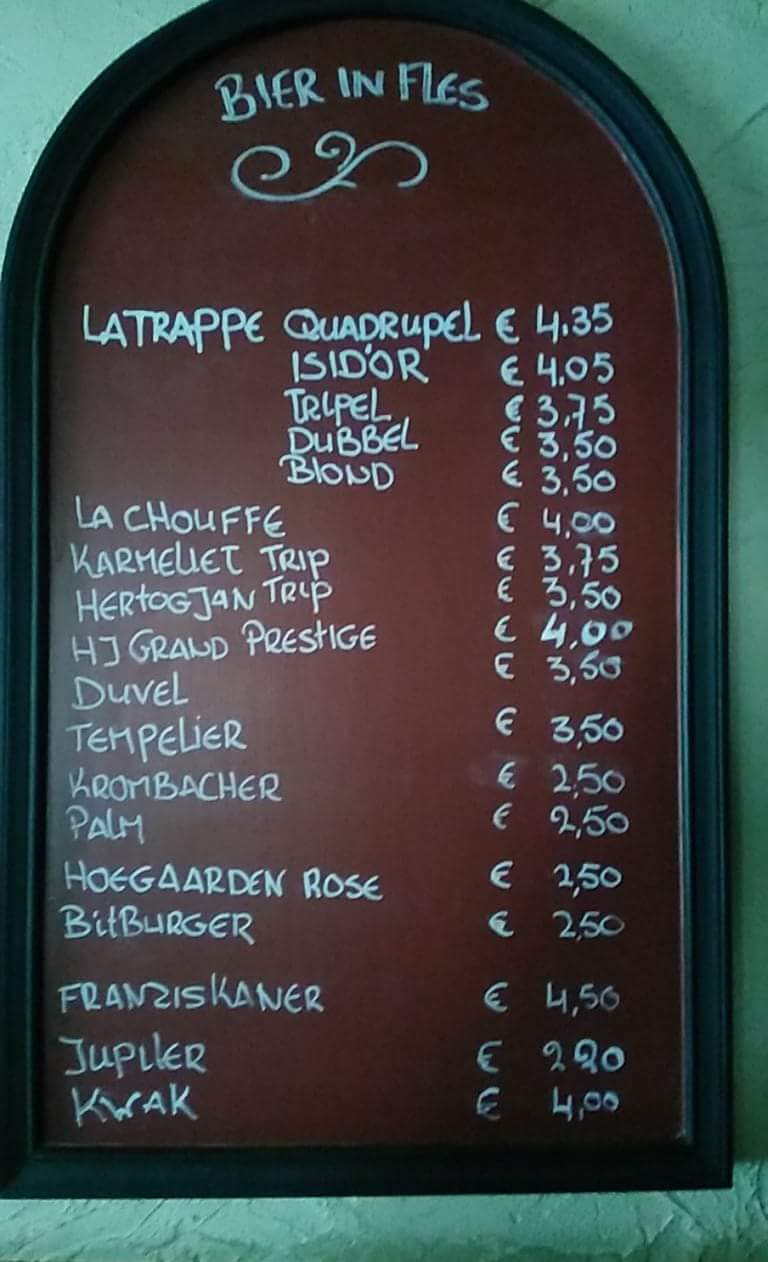 BIER IN FLES
LATRAPPE QUADRUPEL € 4.35
ISID'OR € 4.05
TRIPEL € 3,75
DUBBEL € 3,50
BLOND € 3,50
LA CHOUFFE € 4,00
KARMELIET TRIP € 3,75
HERTOGJAN TRIP € 3,50
HJ GRAND PRESTIGE € 4,00
DUVEL € 3,50
TEMPELIER € 3,50
KROMBACHER € 2,50
PALM € 2,50
HOEGAARDEN ROSE € 2,50
BITBURGER € 2,50
FRANZISKANER € 4,50
JUPILER € 220
KWAK € 4,00